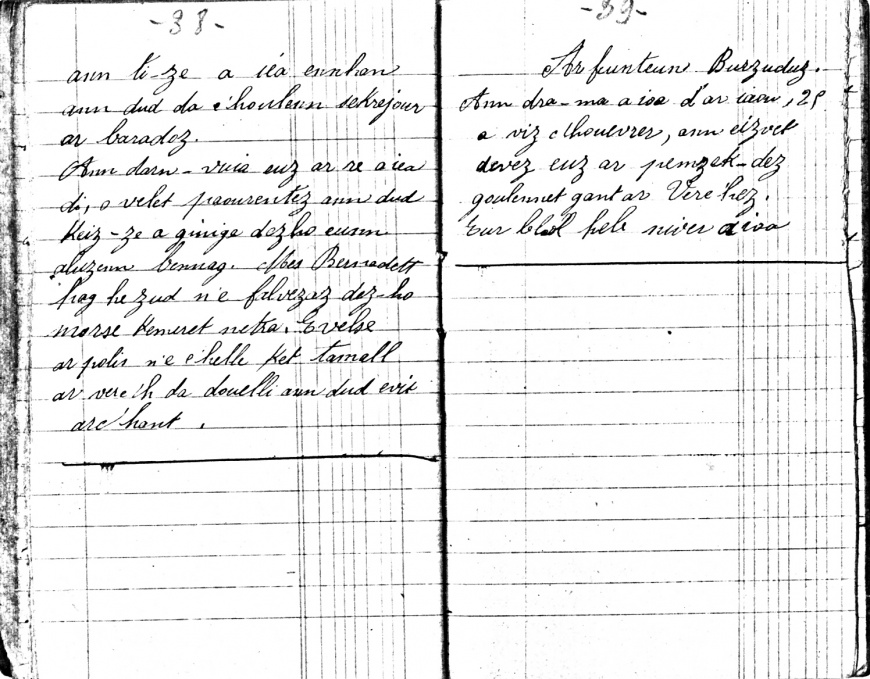 -38-
ann ti-ze a iéa ennhan
ann dud da c'houlenn sekrejour
ar baradoz.
Ann darn-vuia euz ar re a iea
di, o velet paourentez ann dud
Keiz-ze a ginige dezho eunn
aluzenn bennag. Mes Bernadett
hag he zud n'e falvezaz dez-ho
morse Kemeret netra. Evelse
ar polis n'e c'helle Ket tamall
ar verc'h da douelli ann dud evit
arc'hant.
-39-
Ar funteun Burzuduz.
Ann dra-ma a ioa d'ar iaou, 25
a viz c'houevrer, ann eizvet
devez euz ar pemzek-dez
goulennet gant ar Verc'hez.
Eur blol heb niver a ioa